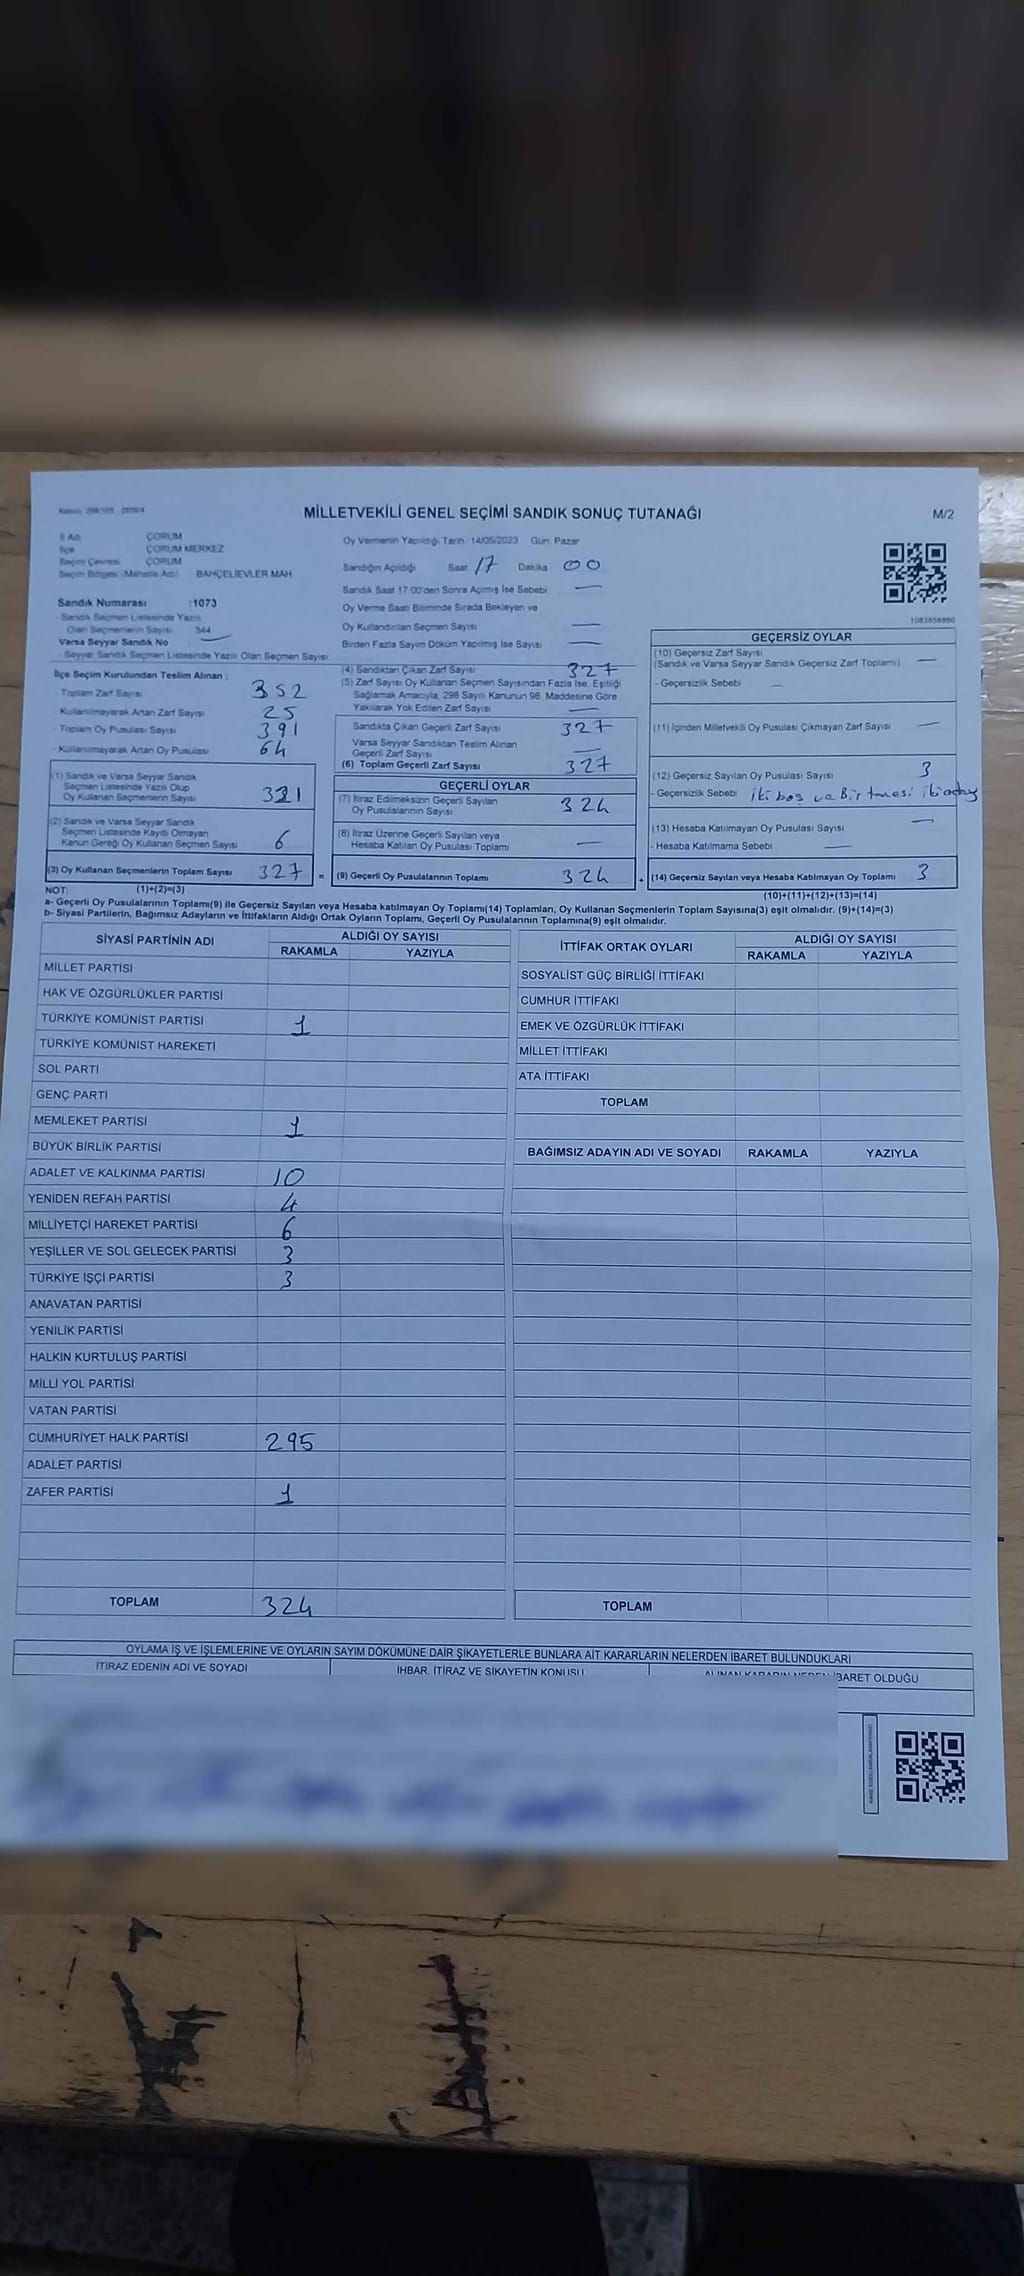 MİLLETVEKİLİ GENEL SEÇİMİ SANDIK SONUÇ TUTANAĞI
M/2
İl Adı ÇORUM
İlçe ÇORUM MERKEZ
Seçim Çevresi ÇORUM
Seçim Bölgesi (Mahalle Adı) BAHÇELİEVLER MAH
Sandık Numarası :1073
- Sandık Seçmen Listesinde Yazılı
Olan Seçmenlerin Sayısı 344
Varsa Seyyar Sandık No —
- Seyyar Sandık Seçmen Listesinde Yazılı Olan Seçmen Sayısı:
İlçe Seçim Kurulundan Teslim Alınan :
- Toplam Zarf Sayısı 352
- Kullanılmayarak Artan Zarf Sayısı 25
- Toplam Oy Pusulası Sayısı 391
- Kullanılmayarak Artan Oy Pusulası 64
(1) Sandık ve Varsa Seyyar Sandık
Seçmen Listesinde Yazılı Olup
Oy Kullanan Seçmenlerin Sayısı 321
(2) Sandık ve Varsa Seyyar Sandık
Seçmen Listesinde Kayıtlı Olmayan
Kanun Gereği Oy Kullanan Seçmen Sayısı 6
(3) Oy Kullanan Seçmenlerin Toplam Sayısı 327 =
Oy Vermenin Yapıldığı Tarih :14/05/2023 Gün Pazar
Sandığın Açıldığı Saat 17 Dakika 00
Sandık Saat 17:00'den Sonra Açılmış İse Sebebi —
Oy Verme Saati Bitiminde Sırada Bekleyen ve
Oy Kullandırılan Seçmen Sayısı —
Birden Fazla Sayım Döküm Yapılmış İse Sayısı —
(4) Sandıktan Çıkan Zarf Sayısı 327
(5) Zarf Sayısı Oy Kullanan Seçmen Sayısından Fazla İse, Eşitliği
Sağlamak Amacıyla, 298 Sayılı Kanunun 98. Maddesine Göre
Yakılarak Yok Edilen Zarf Sayısı —
Sandıkta Çıkan Geçerli Zarf Sayısı 327
Varsa Seyyar Sandıktan Teslim Alınan
Geçerli Zarf Sayısı —
(6) Toplam Geçerli Zarf Sayısı 327
GEÇERLİ OYLAR
(7) İtiraz Edilmeksizin Geçerli Sayılan
Oy Pusulalarının Sayısı 324
(8) İtiraz Üzerine Geçerli Sayılan veya
Hesaba Katılan Oy Pusulası Toplamı —
(9) Geçerli Oy Pusulalarının Toplamı 324
1083856860
GEÇERSİZ OYLAR
(10) Geçersiz Zarf Sayısı
(Sandık ve Varsa Seyyar Sandık Geçersiz Zarf Toplamı) —
- Geçersizlik Sebebi —
(11) İçinden Milletvekili Oy Pusulası Çıkmayan Zarf Sayısı —
(12) Geçersiz Sayılan Oy Pusulası Sayısı 3
- Geçersizlik Sebebi iki boş ve Bir tanesi iki aday
(13) Hesaba Katılmayan Oy Pusulası Sayısı —
- Hesaba Katılmama Sebebi —
(14) Geçersiz Sayılan veya Hesaba Katılmayan Oy Toplamı 3
NOT: (1)+(2)=(3) (10)+(11)+(12)+(13)=(14)
a- Geçerli Oy Pusulalarının Toplamı(9) ile Geçersiz Sayılan veya Hesaba katılmayan Oy Toplamı(14) Toplamları, Oy Kullanan Seçmenlerin Toplam Sayısına(3) eşit olmalıdır. (9)+(14)=(3)
b- Siyasi Partilerin, Bağımsız Adayların ve İttifakların Aldığı Ortak Oyların Toplamı, Geçerli Oy Pusulalarının Toplamına(9) eşit olmalıdır.
SİYASİ PARTİNİN ADI ALDIĞI OY SAYISI
RAKAMLA YAZIYLA
MİLLET PARTİSİ
HAK VE ÖZGÜRLÜKLER PARTİSİ
TÜRKİYE KOMÜNİST PARTİSİ 1
TÜRKİYE KOMÜNİST HAREKETİ
SOL PARTİ
GENÇ PARTİ
MEMLEKET PARTİSİ 1
BÜYÜK BİRLİK PARTİSİ
ADALET VE KALKINMA PARTİSİ 10
YENİDEN REFAH PARTİSİ 4
MİLLİYETÇİ HAREKET PARTİSİ 6
YEŞİLLER VE SOL GELECEK PARTİSİ 3
TÜRKİYE İŞÇİ PARTİSİ 3
ANAVATAN PARTİSİ
YENİLİK PARTİSİ
HALKIN KURTULUŞ PARTİSİ
MİLLİ YOL PARTİSİ
VATAN PARTİSİ
CUMHURİYET HALK PARTİSİ 295
ADALET PARTİSİ
ZAFER PARTİSİ 1
TOPLAM 324
İTTİFAK ORTAK OYLARI ALDIĞI OY SAYISI
RAKAMLA YAZIYLA
SOSYALİST GÜÇ BİRLİĞİ İTTİFAKI
CUMHUR İTTİFAKI
EMEK VE ÖZGÜRLÜK İTTİFAKI
MİLLET İTTİFAKI
ATA İTTİFAKI
TOPLAM
BAĞIMSIZ ADAYIN ADI VE SOYADI RAKAMLA YAZIYLA
TOPLAM
OYLAMA İŞ VE İŞLEMLERİNE VE OYLARIN SAYIM DÖKÜMÜNE DAİR ŞİKAYETLERLE BUNLARA AİT KARARLARIN NELERDEN İBARET BULUNDUKLARI
İTİRAZ EDENİN ADI VE SOYADI İHBAR, İTİRAZ VE ŞİKAYETİN KONUSU ALINAN KARARIN NEDEN İBARET OLDUĞU